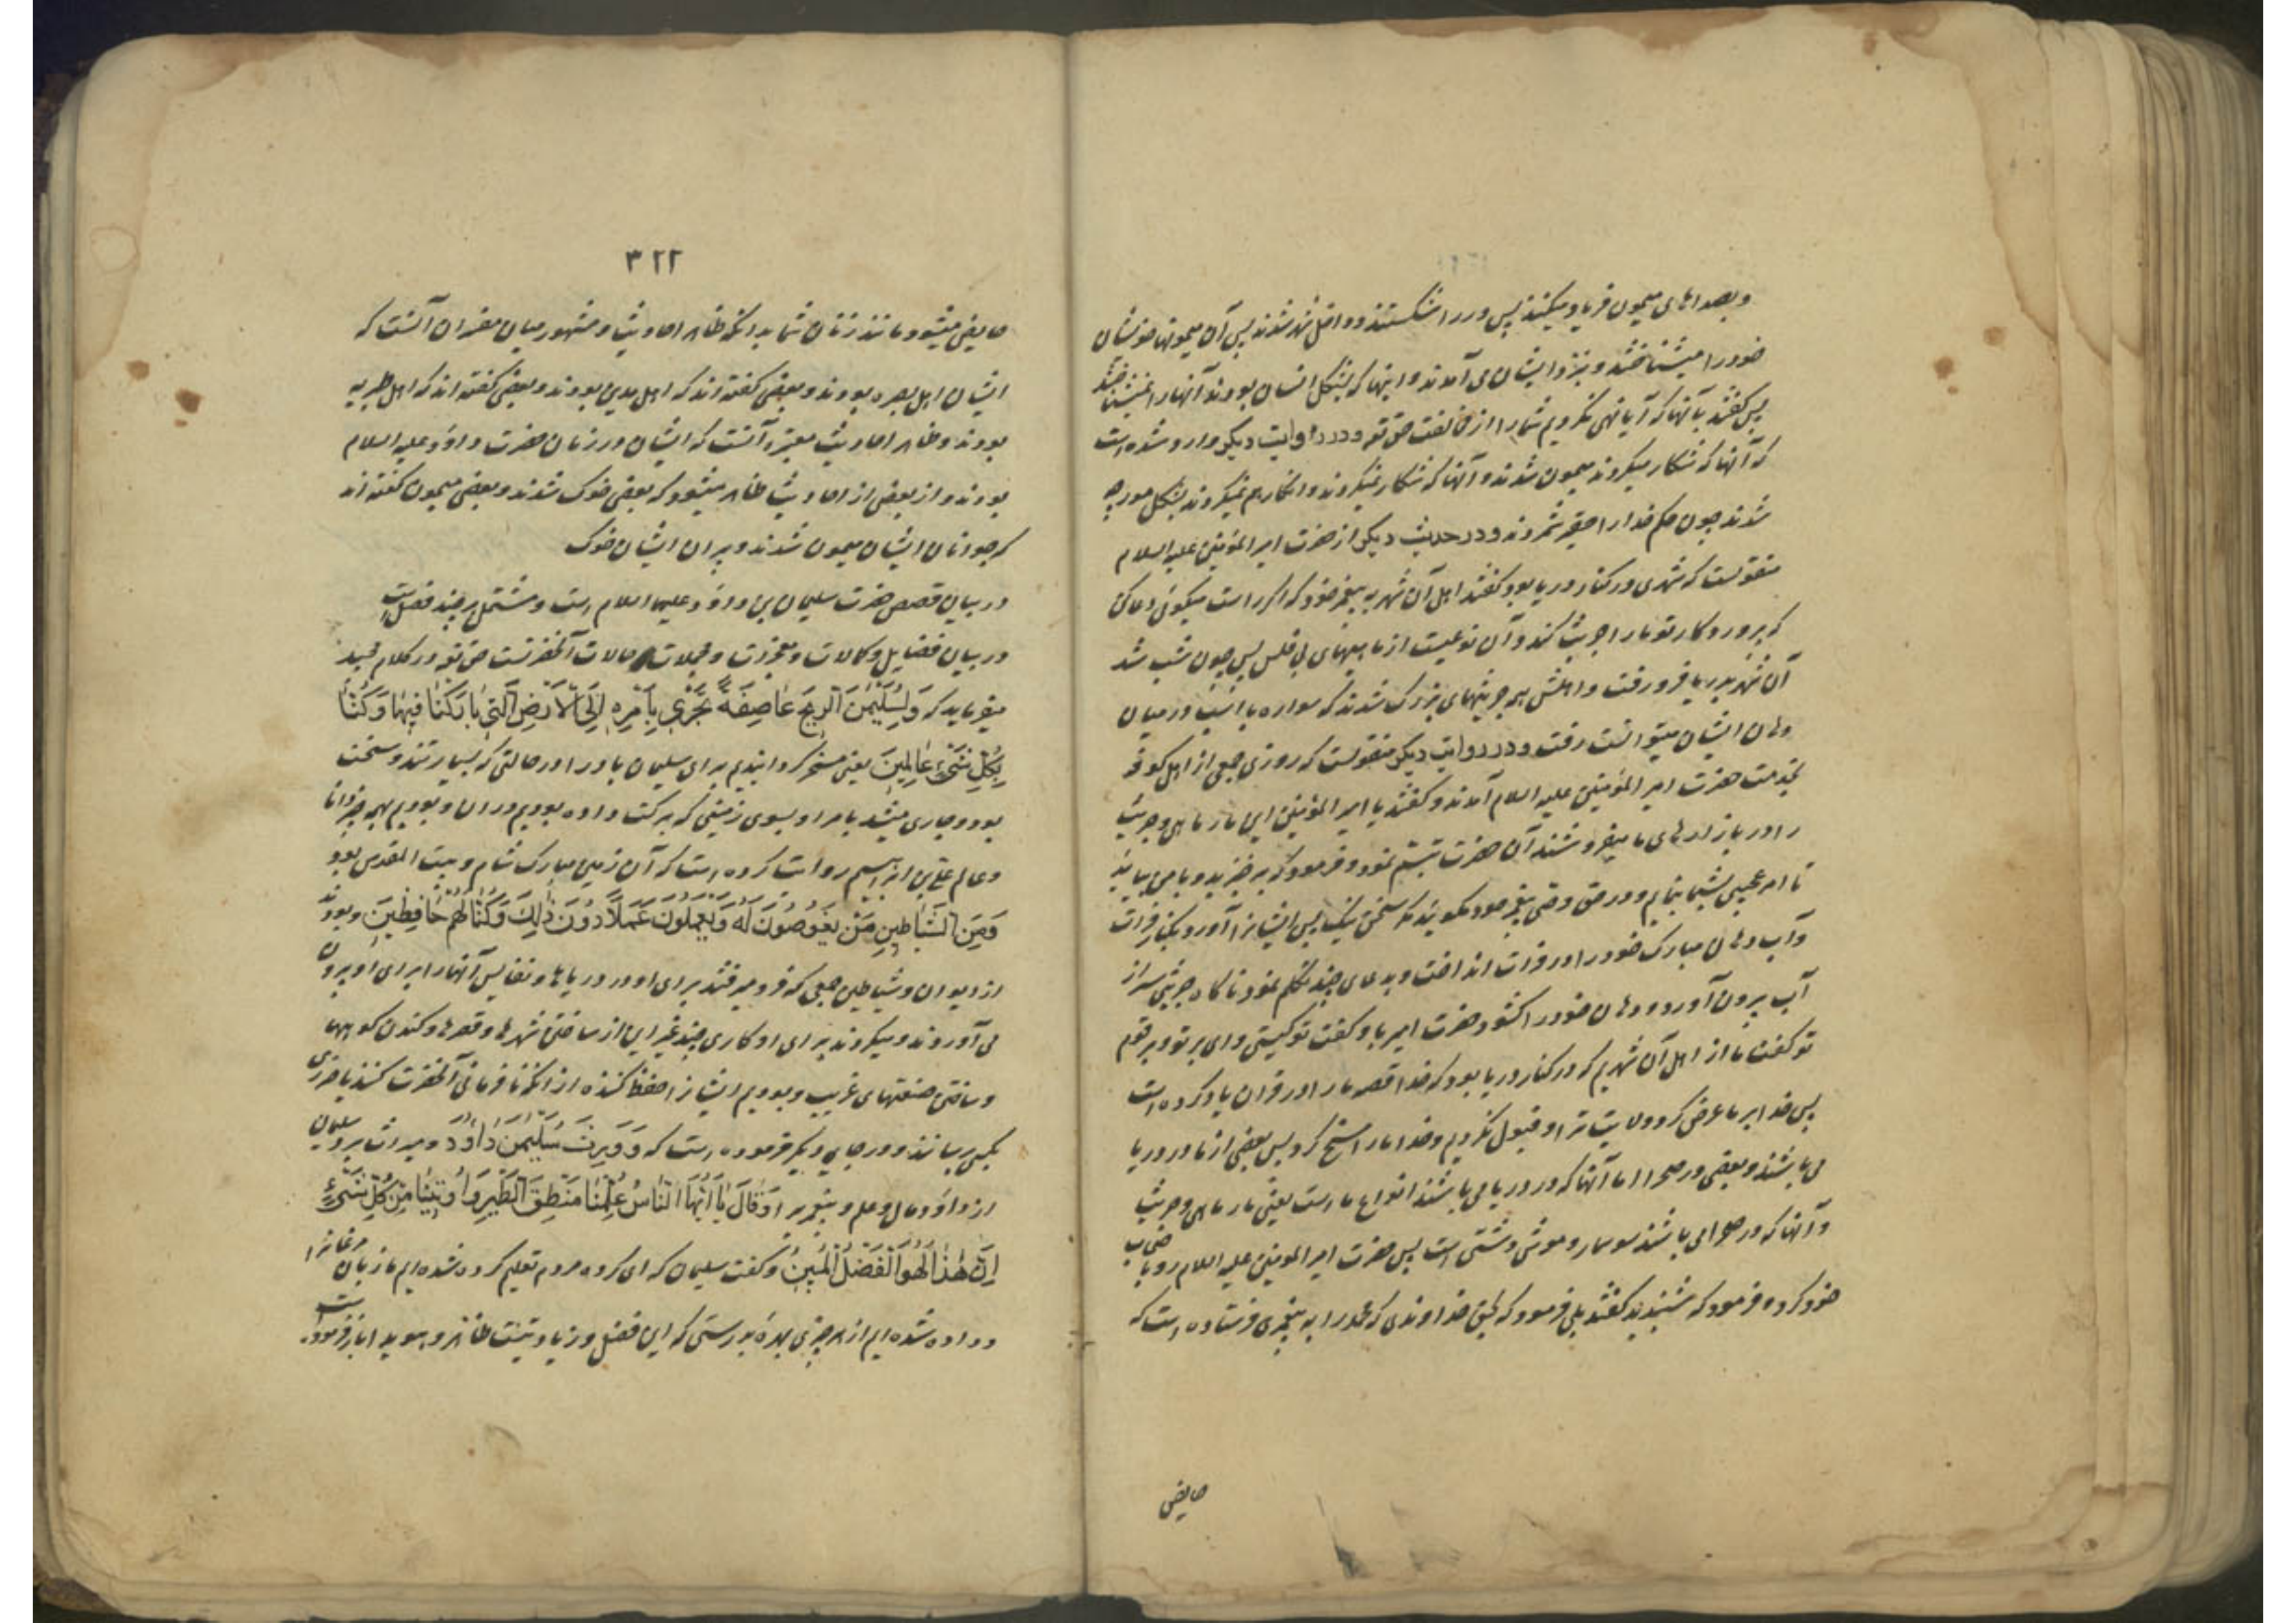 وبصداهای میمون فریاد میکنند پس در را شکستند و داخل شهر شدند پس آن میمونها خویشان
خود را میشناختند و بنزد ایشان می آمدند و اینها که بشکل انسان بودند آنها را نمیشناختند
پس گفتند بآنها که آیا نهی نکردیم شما را از مخالفت حق تعه و در روایت دیگر وارد شده است
که آنها که شکار میکردند میمون شدند و آنها که شکار نمیکردند و انکار هم نمیکردند بشکل مورچه
شدند چون حکم خدا را حقیر شمردند و در حدیث دیگر از حضرت امیر المؤمنین علیه السلام
منقولست که شهری در کنار دریا بود گفتند اهل آن شهر به پیغمبر خود که اگر راست میگوئی دعا کن
که پروردگار تو ما را جریث کند و آن نوعیست از ماهیهای بی فلس پس چون شب شد
آن شهر بدریا فرو رفت و اهلش همه جریثهای بزرگ شدند که سواره با اسب در میان
دهان ایشان میتوانست رفت و در روایت دیگر منقولست که روزی جمعی از اهل کوفه
بخدمت حضرت امیر المؤمنین علیه السلام آمدند و گفتند یا امیر المؤمنین این مار ماهی و جریث
را در بازارهای ما میفروشند آن حضرت تبسم نمود و فرمود که برخیزید و با من بیایید
تا امر عجیبی بشما بنمایم و در حق وصی پیغمبر خود مگوئید مگر سخن نیک پس ایشانرا آورد بکنار فرات
و آب دهان مبارک خود را در فرات انداخت و بدعای چند تکلم نمود ناگاه جریثی سر از
آب بیرون آورد و دهان خود را گشود حضرت امیر باو گفت تو کیستی وای بر تو و بر قوم
تو گفت ما از اهل آن شهریم که در کنار دریا بود که خدا قصه ما را در قران یاد کرده است
پس خدا بر ما عرض کرد ولایت ترا و قبول نکردیم و خدا ما را مسخ کرد پس بعضی از ما در دریا
می باشند و بعضی در صحرا اما آنها که در دریا می باشند انواع ماست یعنی مار ماهی و جریث
و آنها که در صحرا می باشند سوسمار و موش دشتی است پس حضرت امیر المومنین علیه السلام رو باصحاب
خود کرده فرمود که شنیدید گفتند بلی فرمود که بحق خداوندی که محمد را به پیغمبری فرستاده است که
حایض
۳۲۲
حایض میشود مانند زنان شما بدانکه ظاهر احادیث و مشهور میان مفسران آنست که
ایشان اهل بصره بودند و بعضی گفته اند که اهل مدین بودند و بعضی گفته اند که اهل طبریه
بودند و ظاهر احادیث معتبره آنست که ایشان در زمان حضرت داود علیه السلام
بودند و از بعضی از احادیث ظاهر میشود که بعضی خوک شدند و بعضی میمون گفته اند
که جوانان ایشان میمون شدند و پیران ایشان خوک
در بیان قصص حضرت سلیمان بن داود علیهما السلام است و مشتمل بر چند فصل است
در بیان فضایل و کمالات و معجزات و مجملات حالات آنحضرتست حق تعه در کلام مجید
میفرماید که وَلِسُلَیْمٰنَ الرِّیحَ عَاصِفَةً تَجْرِی بِاَمْرِهِ اِلَی الْاَرْضِ الَّتِی بَارَکْنَا فِیهَا وَکُنَّا
بِکُلِّ شَیْءٍ عَالِمِینَ یعنی مسخر گردانیدیم برای سلیمان باد را در حالتی که بسیار تند و سخت
بود و جاری میشد بامر او بسوی زمینی که برکت داده بودیم در ان و بودیم بهمه چیز دانا
و عالم علی بن ابراهیم روایت کرده است که آن زمین مبارک شام و بیت المقدس بود
وَمِنَ الشَّیَاطِینِ مَنْ یَغُوصُونَ لَهُ وَیَعْمَلُونَ عَمَلًا دُونَ ذٰلِکَ وَکُنَّا لَهُمْ حَافِظِینَ و بودند
از دیوان و شیاطین جمعی که فرو میرفتند برای او در دریاها و نفایس آنها را برای او بیرون
می آوردند و میکردند برای او کاری چند غیر این از ساختن شهرها و قصرها و کندن کوهها
و ساختن صنعتهای غریب و بودیم ایشانرا حفظ کننده از آنکه نافرمانی آنحضرت کنند یا ضرری
بکسی برسانند و در جای دیگر فرموده است که وَوَرِثَ سُلَیْمٰنُ دَاوُدَ و میراث برد سلیمان
از داود مال و علم و پیغمبری را وَقَالَ یَا اَیُّهَا النَّاسُ عُلِّمْنَا مَنْطِقَ الطَّیْرِ وَاُوتِینَا مِنْ کُلِّ شَیْءٍ
اِنَّ هٰذَا لَهُوَ الْفَضْلُ الْمُبِینُ و گفت سلیمان که ای گروه مردم تعلیم کرده شده ایم ما زبان مرغانرا
و داده شده ایم از هر چیزی بهره بدرستی که این فضل و زیادتیست ظاهر و هویدا باز فرموده است